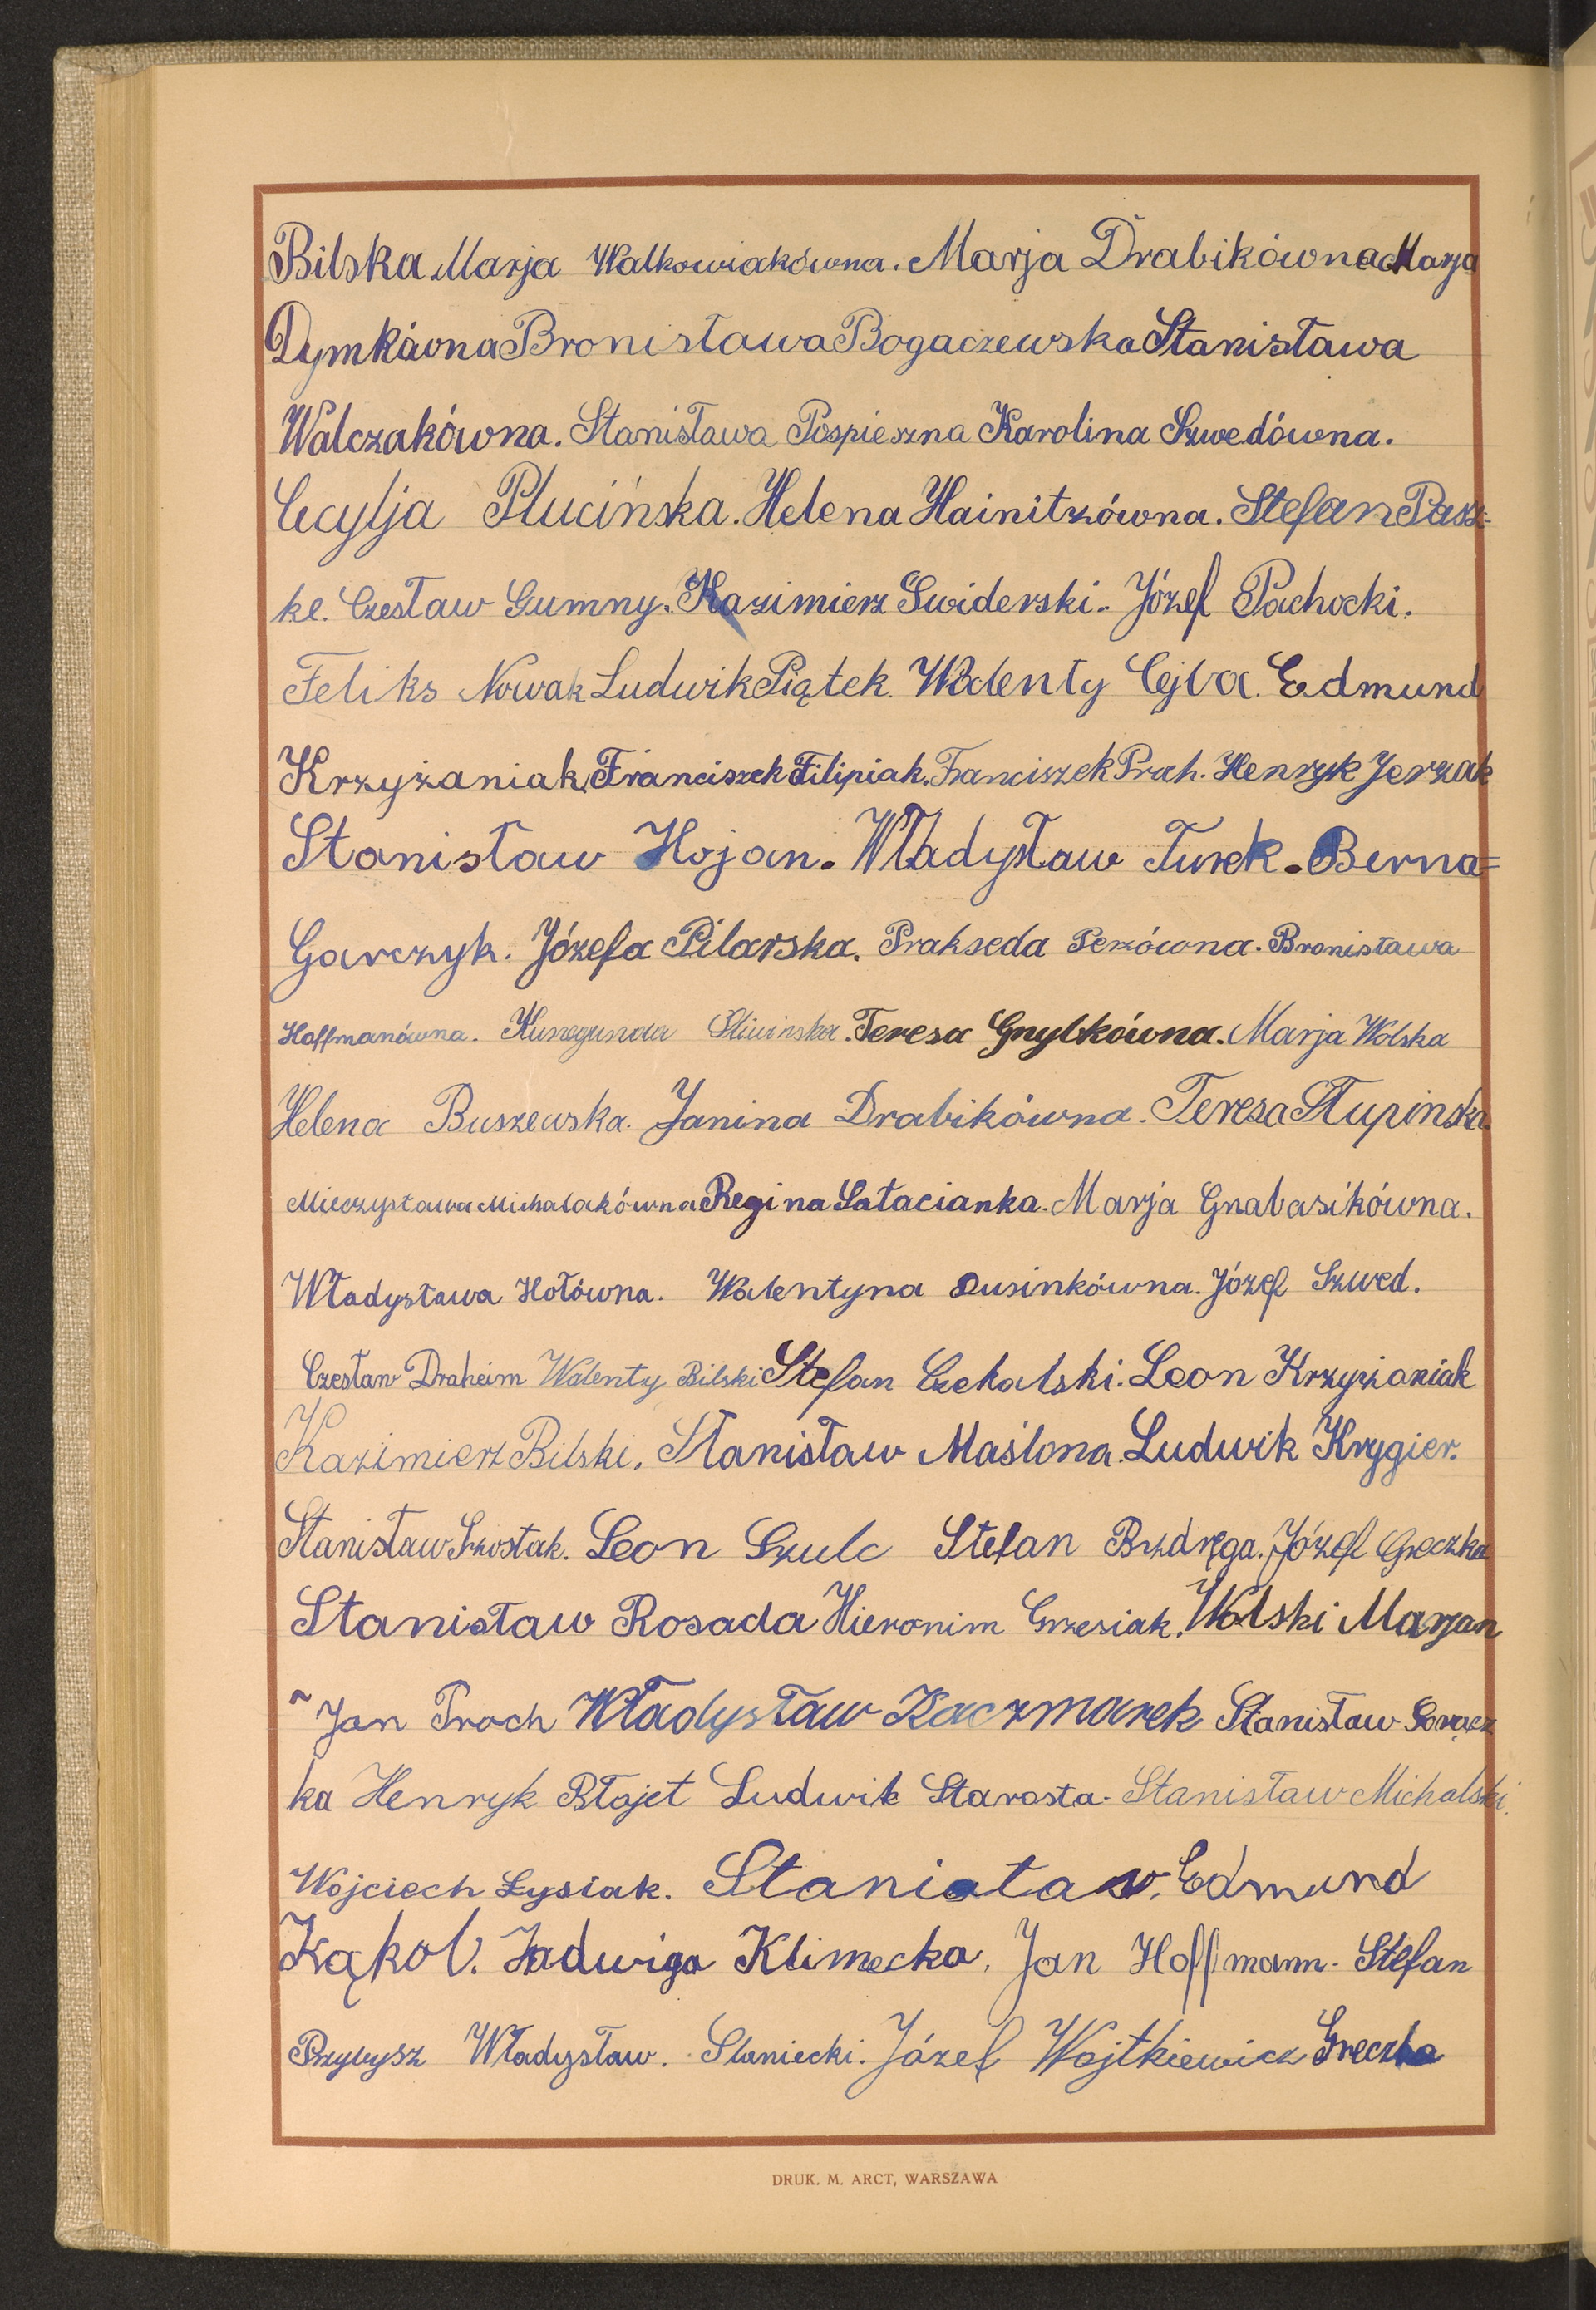 Bilska Marja Walkowiakówna. Marja Drabikówna Marja
Dymkówna Bronisława Bogaczewska Stanisława
Walczakówna. Stanisława Pospieszna Karolina Szwedówna.
Cecylja Plucińska. Helena Hainitzówna. Stefan Pasz=
ke. Czesław Gumny. Kazimierz Świderski. Józef Pachocki.
Feliks Nowak Ludwik Piątek. Walenty Cejba. Edmund
Krzyżaniak, Franciszek Filipiak. Franciszek Prach. Henryk Jerzak
Stanisław Hojan. Władysław Turek. Berna=
Garczyk. Józefa Pilarska. Prakseda Perzówna. Bronisława
Hoffmanówna. Kunegunda Śliwinska. Teresa Gnybkówna. Marja Wolska
Helena Buszewska. Janina Drabikówna. Teresa Słupinska.
Mieczysława Michalakówna Regina Satacianka. Marja Grabasikówna.
Władysława Hołówna. Walentyna Dusinkówna. Józef Szwed.
Czesław Draheim Walenty Bilski Stefan Czekalski. Leon Krzyżaniak
Kazimierz Bilski. Stanisław Maślona. Ludwik Krygier.
Stanisław Szostak. Leon Szulc Stefan Brzdręga. Józef Greczka
Stanisław Rosada Hieronim Grzesiak. Wolski Marjan
Jan Proch Władysław Kaczmarek Stanisław Gorącz
ka Henryk Błajet Ludwik Starosta. Stanisław Michalski.
Wojciech Łysiak. Stanisław. Edmund
Kąkol. Jadwiga Klimecka. Jan Hoffmann. Stefan
Przybysz Władysław. Słaniecki. Józef Wojtkiewicz Greczka
DRUK. M. ARCT, WARSZAWA